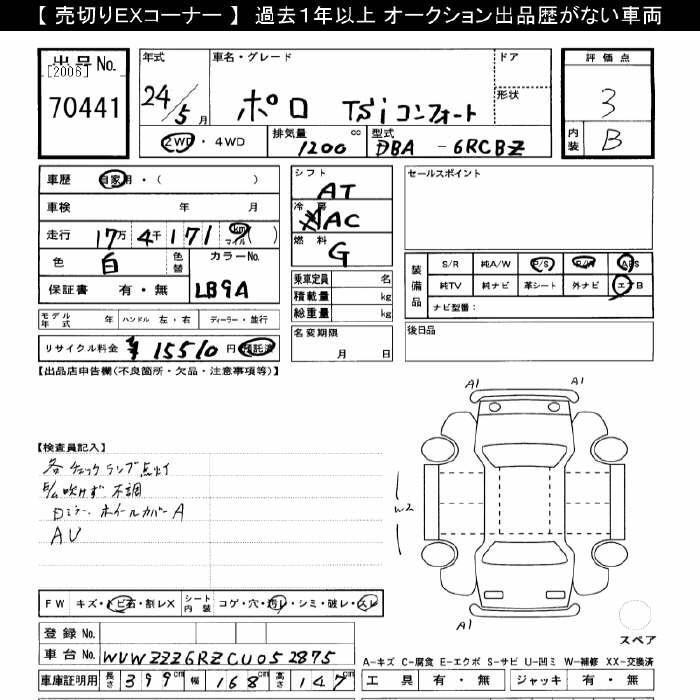 【 売切りEXコーナー 】 過去１年以上 オークション出品歴がない車両
出品No. [2006] 70441
年式 24/5月
車名・グレード ポロ TSiコンフォート
ドア
形状
2WD・4WD
排気量 1200 cc
型式 DBA - 6RCBZ
評価点 3
内装 B
車歴 自家用・( )
車検 年 月
走行 17万 4千 171 km マイル )
色 白 色替
カラーNo. LB9A
保証書 有・無
シフト AT
冷房 AC
燃料 G
乗車定員 名
積載量 kg
総重量 kg
名変期限 月 日
セールスポイント
装備品 S/R 純A/W P/S P/W ABS
純TV 純ナビ 革シート 外ナビ エアB
ナビ型番：
後日品
モデル年式 年 ハンドル 左・右 ディーラー・並行
リサイクル料金 ¥15510 円 預託済
【出品店申告欄(不良箇所・欠品・注意事項等)】
【検査員記入】
各チェックランプ点灯
吹けず 不調
ホイールカバーA
AU
A1 A1
W2
A1
スペア
FW キズ・トビ石・割レX シート内装 コゲ・穴・汚レ・シミ・破レ・スレ
登録No.
車台No. WVWZZZ6RZCU052875
車庫証明用 長さ 399cm 幅 168cm 高さ 147cm
A-キズ C-腐食 E-エクボ S-サビ U-凹ミ W-補修 XX-交換済
工具 有・無 ジャッキ 有・無